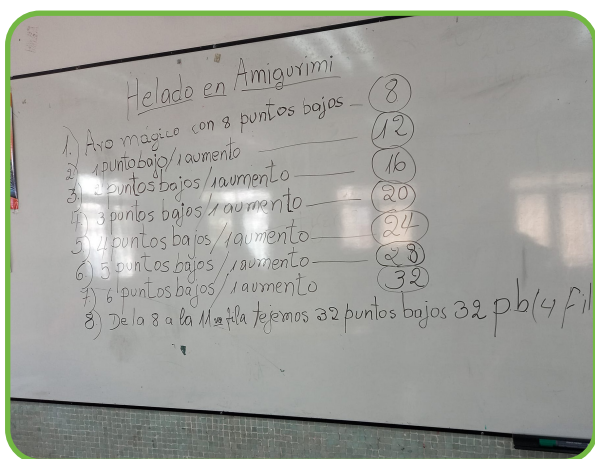 Helado en Amigurimi
1.) Aro mágico con 8 puntos bajos 8
2) 1 punto bajo/1 aumento 12
3. 2 puntos bajos/1 aumento 16
4) 3 puntos bajos/1 aumento 20
5) 4 puntos bajos/1 aumento 24
6) 5 puntos bajos/1 aumento 28
7) 6 puntos bajos/1 aumento 32
8) De la 8 a la 11 fila tejemos 32 puntos bajos 32 pb (4 fil